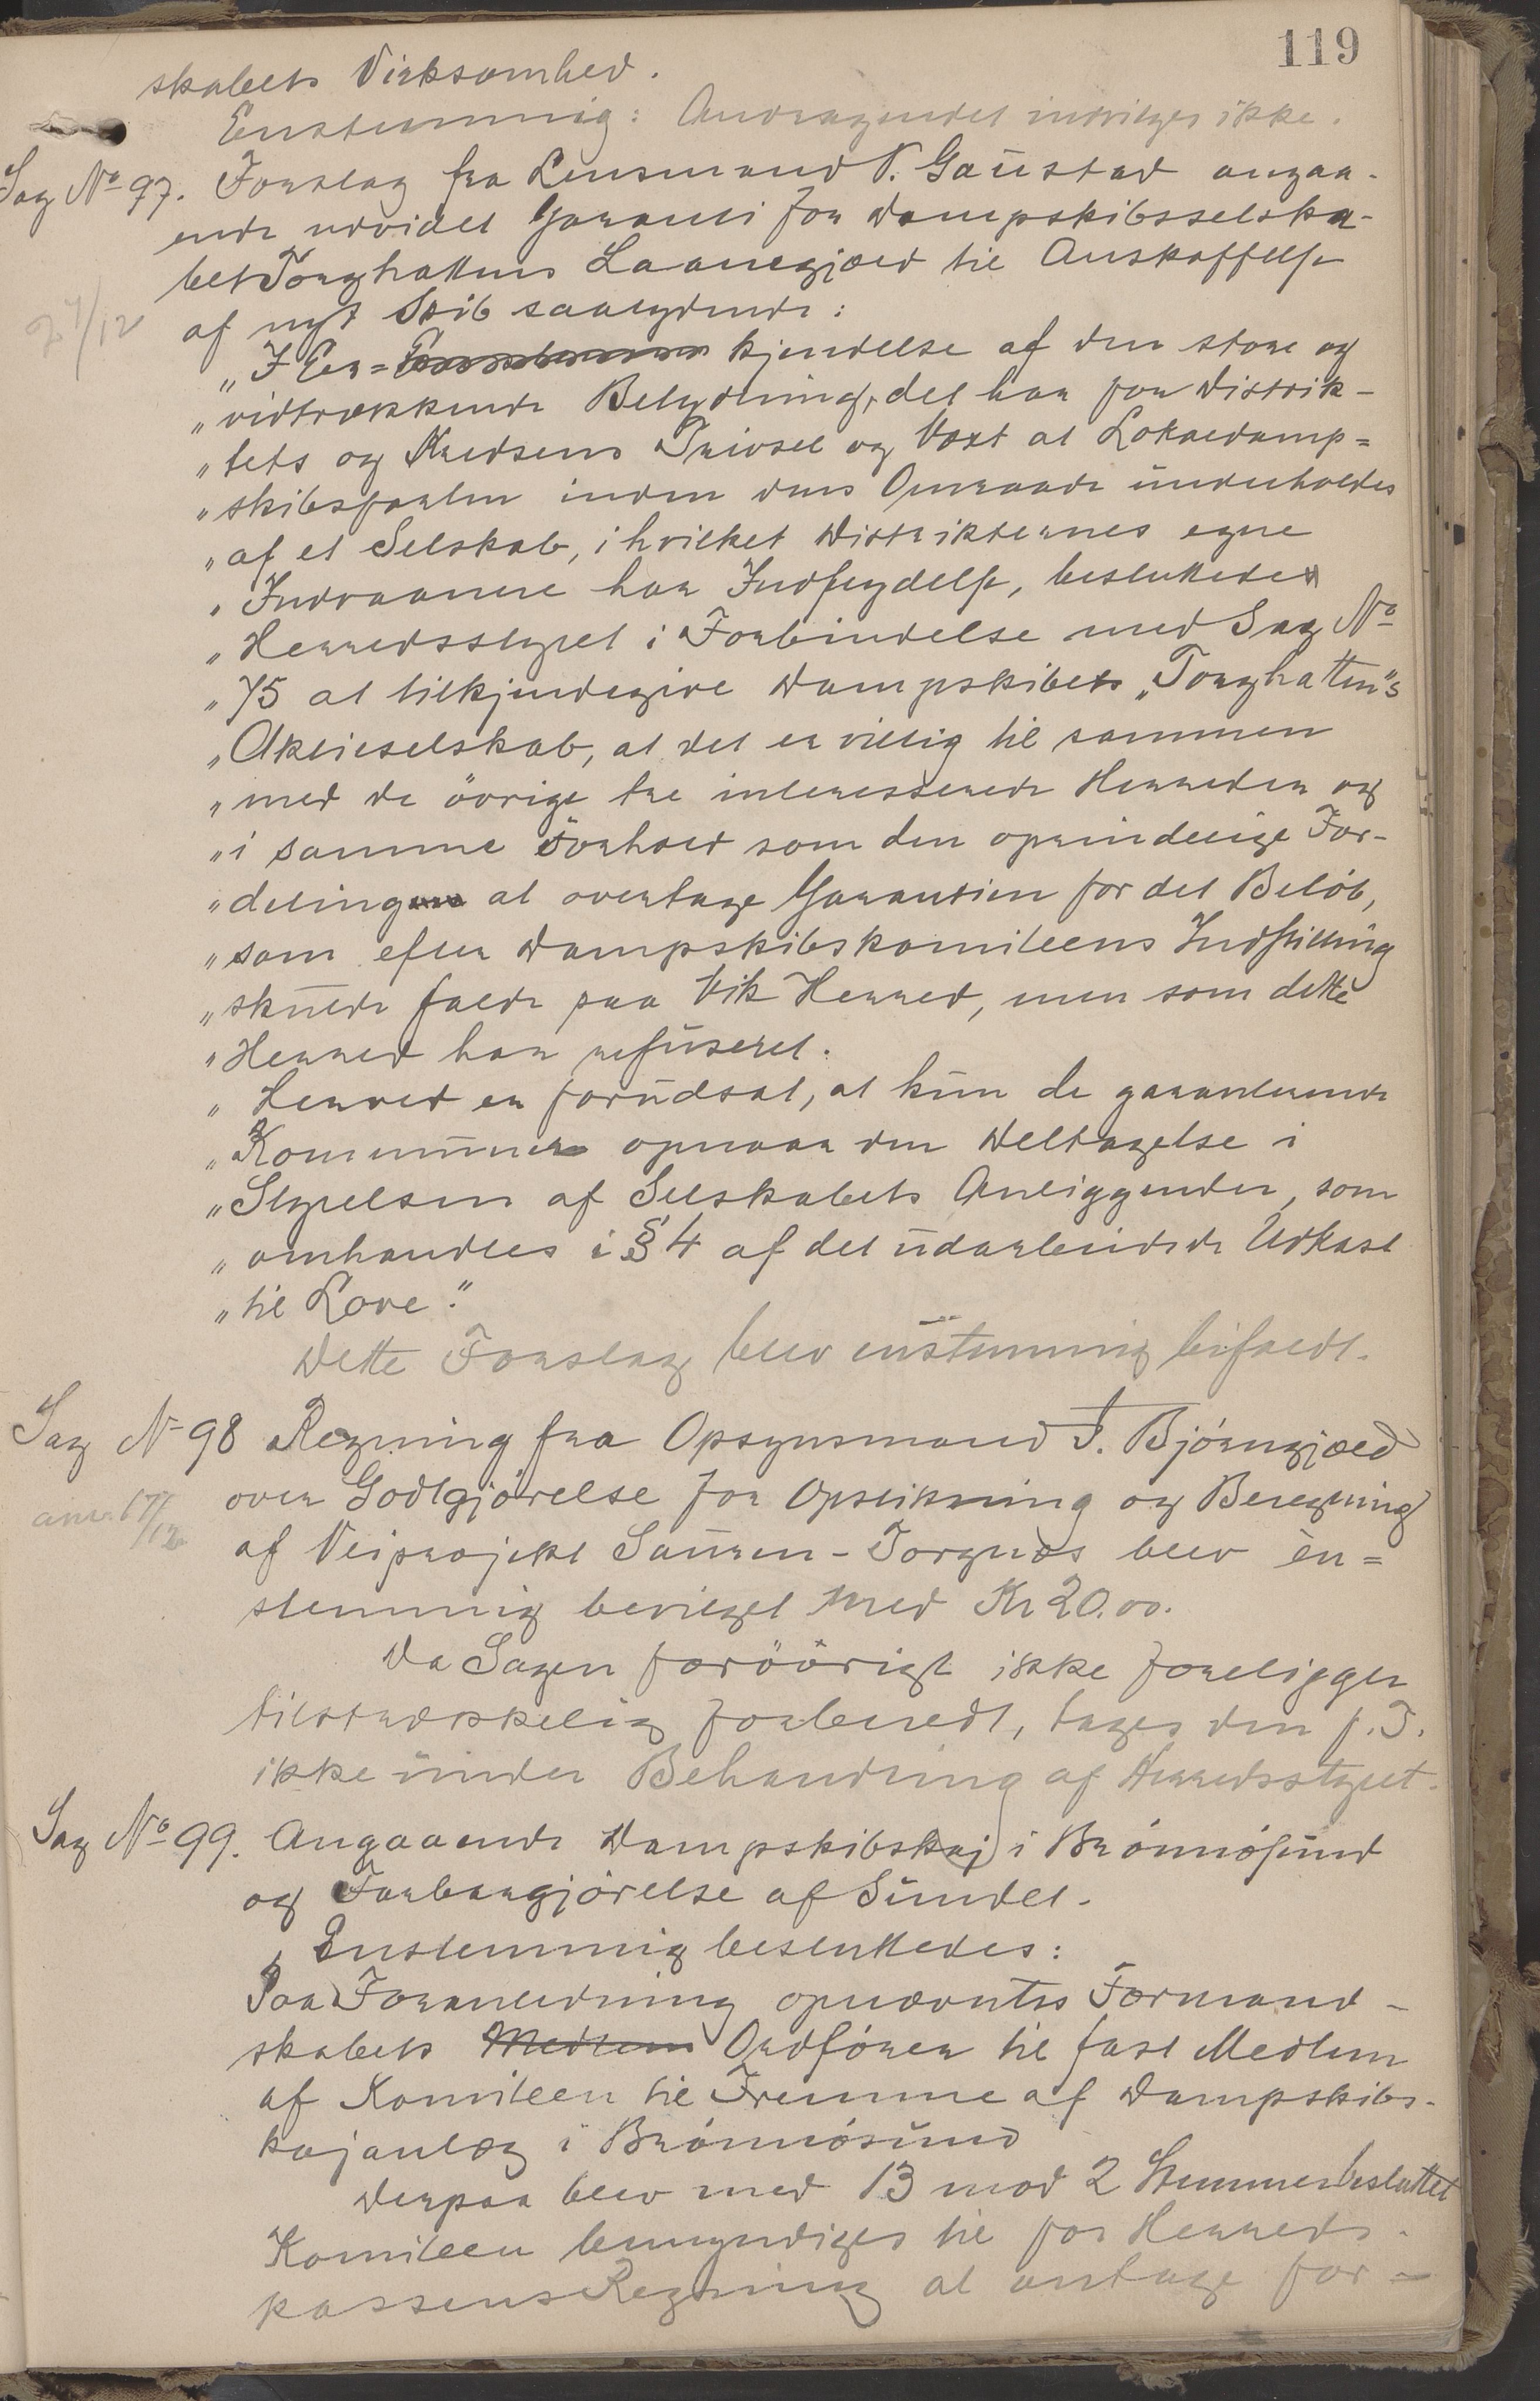 119
skabets Virksomhed.
Enstemmig: Andragendet indvilges ikke.
Sag No 97. Forslag fra Lensmand N. Gaustad angaa-
ende udvidet Garanti for Dampskibsselska-
bet Torghattens Laanegjæld til Anskaffelse
af nyt Skib saalydende:
27/12
"I Er= kjendelse af den store og
"vidtrækkende Betydning, det har for Distrik-
"tets og Kredsens Trivsel og Vext at Lokaldamp=
"skibsfarten inden dens Omraade underholdes
"af et Selskab, i hvilket Distrikternes egne
"Indvaanere har Indflydelse, besluttede
"Herredsstyret i Forbindelse med Sag No
"75 at tilkjendegive Dampskibets "Torghatten"s
"Aktieselskab, at det er villig til sammen
"med de övrige tre interesserede Herreder og
"i samme Forhold som den oprindelige For-
"deling at overtage Garantien for det Belöb,
"som efter Dampskibskomiteens Indstilling
"skulde falde paa Vik Herred, men som dette
"Herred har refuseret.
"Herved er forudsat, at kun de garanterende
"Kommuner opnaar den Deltagelse i
"Styrelsen af Selskabets Anliggender, som
"omhandles i § 4 af det udarbeidede Udkast
"til Love."
Dette Forslag blev enstemmig bifaldt.
Sag N 98 Regning fra Opsynsmand J. Björngjæld
over Godtgjörelse for Opstikning og Beregning
anv. 17/12
af Veiprojekt Sauren-Torgnes blev en=
stemmig bevilget med Kr 20.00.
Da Sagen foröörigt ikke foreligger
tilstrækkelig forberedt, tages den p. T.
ikke under Behandling af Herredsstyret.
Sag No 99. Angaaende Dampskibskaj i Brönnösund
og Farbargjörelse af Sundet.
Enstemmig besluttedes:
Paa Foranledning opnævntes Formand-
skabets Ordförer til fast Medlem
af Komiteen til Fremme af Dampskibs-
kajanlæg i Brönnösund
Derpaa blev med 13 mod 2 Stemmer besluttet
Komiteen bemyndiges til for Herreds-
kassens Regning at antage for-